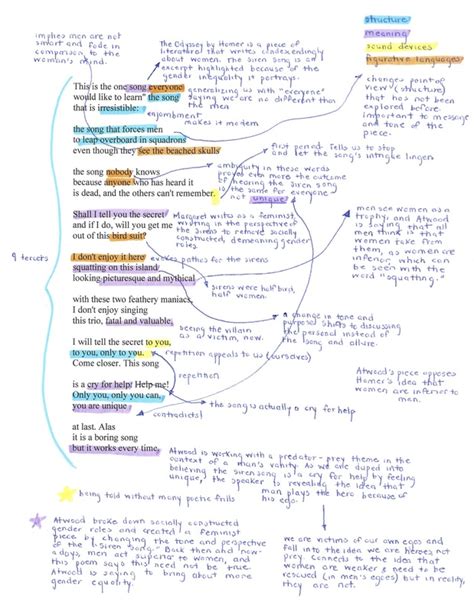 implies men are not
smart and fade in
comparison to the
woman's mind.
The Odyssey by Homer is a piece of
literature that writes condescendingly
about women. The siren song is an
excerpt highlighted because of the
gender inequality it portrays.
structure
meaning
sound devices
figurative languages
This is the one song everyone
would like to learn" the song
that is irresistible:
generalizing us with "everyone"
saying we are no different than
the men
enjambment
makes it modern
changes point of
view (structure)
that has not been
explored before
important to message
and tone of the
piece.
the song that forces men
to leap overboard in squadrons
even though they see the beached skulls
first period. Tells us to stop
and let the song's intrigue linger
the song nobody knows
because anyone who has heard it
is dead, and the others can't remember.
ambiguity in these words
proves even more the outcome
of hearing the siren song
is the same for everyone
not unique
Shall I tell you the secret
and if I do, will you get me
out of this bird suit?
Margaret writes as a feminist,
writing in the perspective of
the sirens to remove socially
constructed, demeaning gender
roles
men see women as a
trophy, and Atwood
is saying that all
men think is that
women take from
them, as women are
inferior, which can
be seen with the
word "squatting."
9 tercets
I don't enjoy it here
squatting on this island
looking picturesque and mythical
evokes pathos for the sirens
sirens were half bird,
half women.
with these two feathery maniacs,
I don't enjoy singing
this trio, fatal and valuable.
seeing the villain
as a victim, now.
a change in tone and
purpose shifts to discussing
the personal instead of
the song and allure.
I will tell the secret to you,
to you, only to you.
Come closer. This song
repetition appeals to us (ourselves)
repetition
is a cry for help: Help me!
Only you, only you can,
you are unique
the song is actually a cry for help
contradicts!
Atwood's piece opposes
Homer's idea that
women are inferior to
man.
at last. Alas
it is a boring song
but it works every time.
Atwood is working with a predator-prey theme in the
context of a man's vanity. As we are duped into
believing the siren song is a cry for help by feeling
unique, the speaker is revealing the idea that
man plays the hero because of
his ego.
being told without many poetic frills
Atwood broke down socially constructed
gender roles and created a feminist
piece by changing the tone and perspective
of the "Siren Song." Back then and now-
a days, men act superior to women, and
this poem says this need not be true.
Atwood is saying to bring about more
gender equality.
we are victims of our own egos and
fall into the idea we are heroes not
prey. Connects to the idea that
women are weaker & need to be
rescued (in men's eyes) but in reality,
they are not.